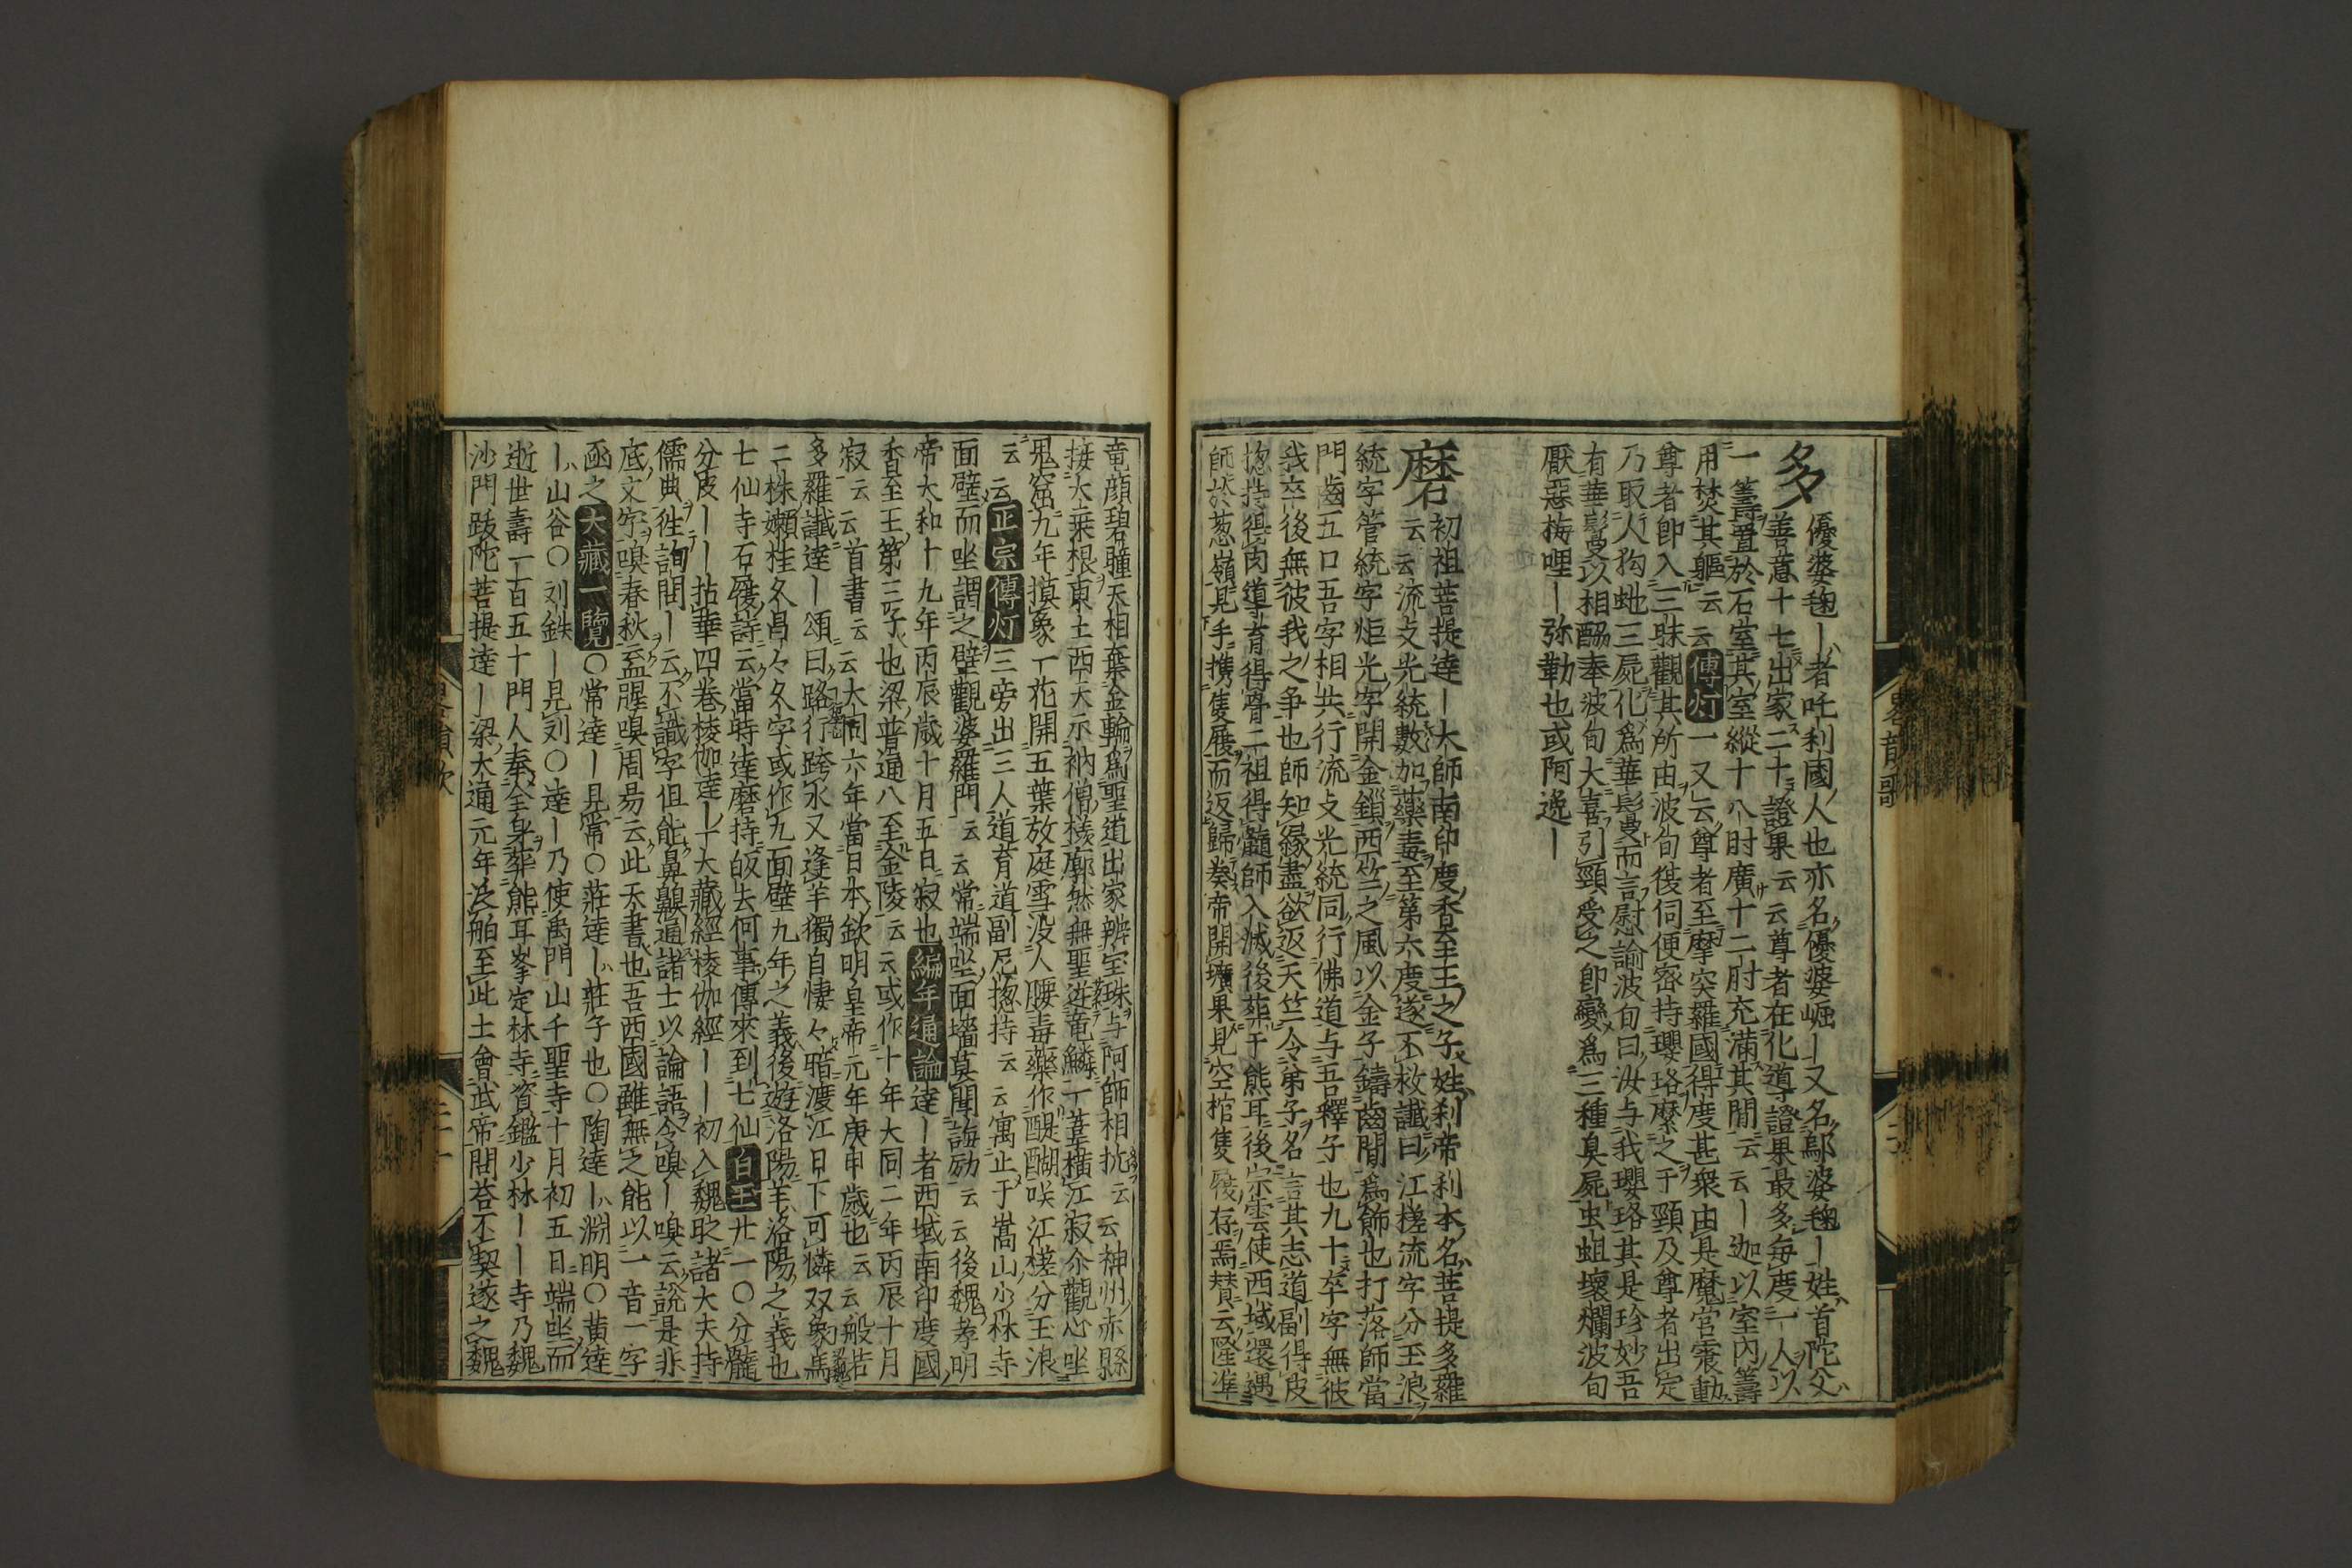 多
優婆毱―者吒利國人也亦名優婆崛―又名鄔婆毱―姓首陀父
善意十七出家二十證果云云尊者在化導證果最多毎度一人以
一籌置於石室其室縱十八肘廣十二肘充滿其間云云―迦以室內籌
用焚其軀云云傳灯一又云尊者至摩突羅國得度甚衆由是魔宮震動
尊者即入三昧觀其所由波旬復伺便密持瓔珞縻之于頸及尊者出定
乃取人狗虵三屍化爲華鬘而言慰諭波旬曰汝与我瓔珞其是珍妙吾
有華鬘以相酬奉波旬大喜引頸受之即變爲三種臭屍虫蛆壞爛波旬
厭惡梅哩―弥勒也或阿逸―
磨
初祖菩提達―大師南印度香至王之子姓刹帝利本名菩提多羅
云云流支光統數加藥毒至第六度遂不救讖曰江槎流字分玉浪
統字管統字炬光字開金鎖西竺之風以金子鑄齒間爲飾也打落師當
門齒五口吾字相共行流支光統同行佛道与吾釋子也九十卒字無彼
我卒後無彼我之爭也師知緣盡欲返天竺令弟子名言其志道副得皮
揔持得肉道育得骨二祖得髓師入滅後葬于熊耳後宗雲使西域還遇
師於葱嶺見手携隻履而返歸奏帝開壙果見空棺隻履存焉賛云隆準
竜顔碧瞳天相棄金輪爲聖道出家辨宝珠与阿師相抗云云神州赤縣
接大乗根東土西天示衲僧樣廓然無聖逆竜鱗一葦橫江寂介觀心坐
鬼窟九年摸象一花開五葉放庭雪没人腰毒藥作醍醐咲江槎分玉浪
云云正宗傳灯三旁出三人道育道副尼揔持云云寓止于嵩山少林寺
面壁而坐謂之壁觀婆羅門云云常端坐面墻莫聞誨励云云後魏孝明
帝大和十九年丙辰歲十月五日寂也編年通論達―者西域南印度國
香至王第三子也梁普通八至金陵云云或作十年大同二年丙辰十月
寂云云首書云云大同六年當日本欽明皇帝元年庚申歲也云云般若
多羅讖達―頌曰路行跨水又逢羊獨自悽々暗渡江日下可憐双象馬
二株嫩桂久昌々久字或作九面壁九年之義後遊洛陽羊洛陽之義也
七仙寺石履詩云當時達磨持皈去何事傳來到七仙白玉廿一〇分髓
分皮――拈華四巻棱伽達―丁大藏經棱伽經――初入魏取諸大夫持
儒典徃詢問―云不識字但能鼻齅通諸士以論語令嗅―嗅云說是非
底文字嗅春秋云血腥嗅周昜云此天書也吾西國雖無之能以一音一字
函之大藏一覽〇常達―見常〇莊達―莊子也〇陶達―淵明〇黄達
―山谷〇刘鉄―見刘〇達―乃使禹門山千聖寺十月初五日端坐而
逝世壽一百五十門人奉全身葬熊耳峯定林寺資鑑少林――寺乃魏
沙門跋陀菩提達―梁大通元年泛舶至此土會武帝問荅不契遂之魏